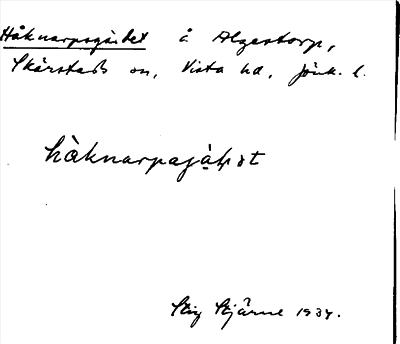 Håknarpsgärdet å Algestorp,
Skärstads sn, Vista hd, Jönk. l.
håknarpajäḷət
Stig Stjärne 1934.